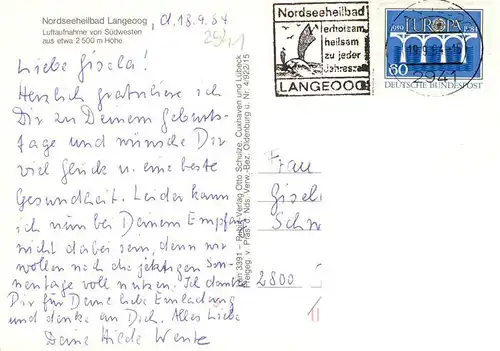 Nordseeheilbad Langeoog
Luftaufnahme von Südwesten
aus etwa 2500 m Höhe
d. 18.9.84
2941
Liebe Gisela!
Herzlich gratuliere ich
Dir zu Deinem Geburts-
tage und wünsche Dir
viel Glück u. eine beste
Gesundheit. Leider kann
ich nun bei Deinem Empfang
nicht dabei sein, denn wir
wollen noch die jetzigen Son-
nentage voll nutzen. Ich danke
Dir für Deine liebe Einladung
und denke an Dich. Alles Liebe
Deine Hilde Wente
3391 – Verlag Otto Schülze, Cuxhaven und Lübeck
Freigeg. v. Präs. d. Nds. Verw.-Bez. Oldenburg u. Nr. 4922/15
Nordseeheilbad
erholsam
heilsam
zu jeder
Jahreszeit
LANGEOOG
2941
1959 EUROPA 1984
60
DEUTSCHE BUNDESPOST
Frau
Gisel
Schw
2800